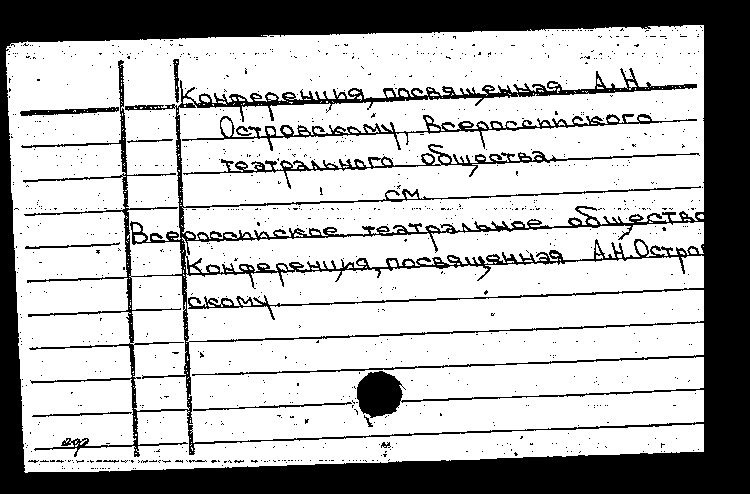 Конференция, посвященная А.Н.
Островскому, Всероссийского
театрального общества.
см.
Всероссийское театральное общество
Конференция, посвященная А.Н.Остров
скому.